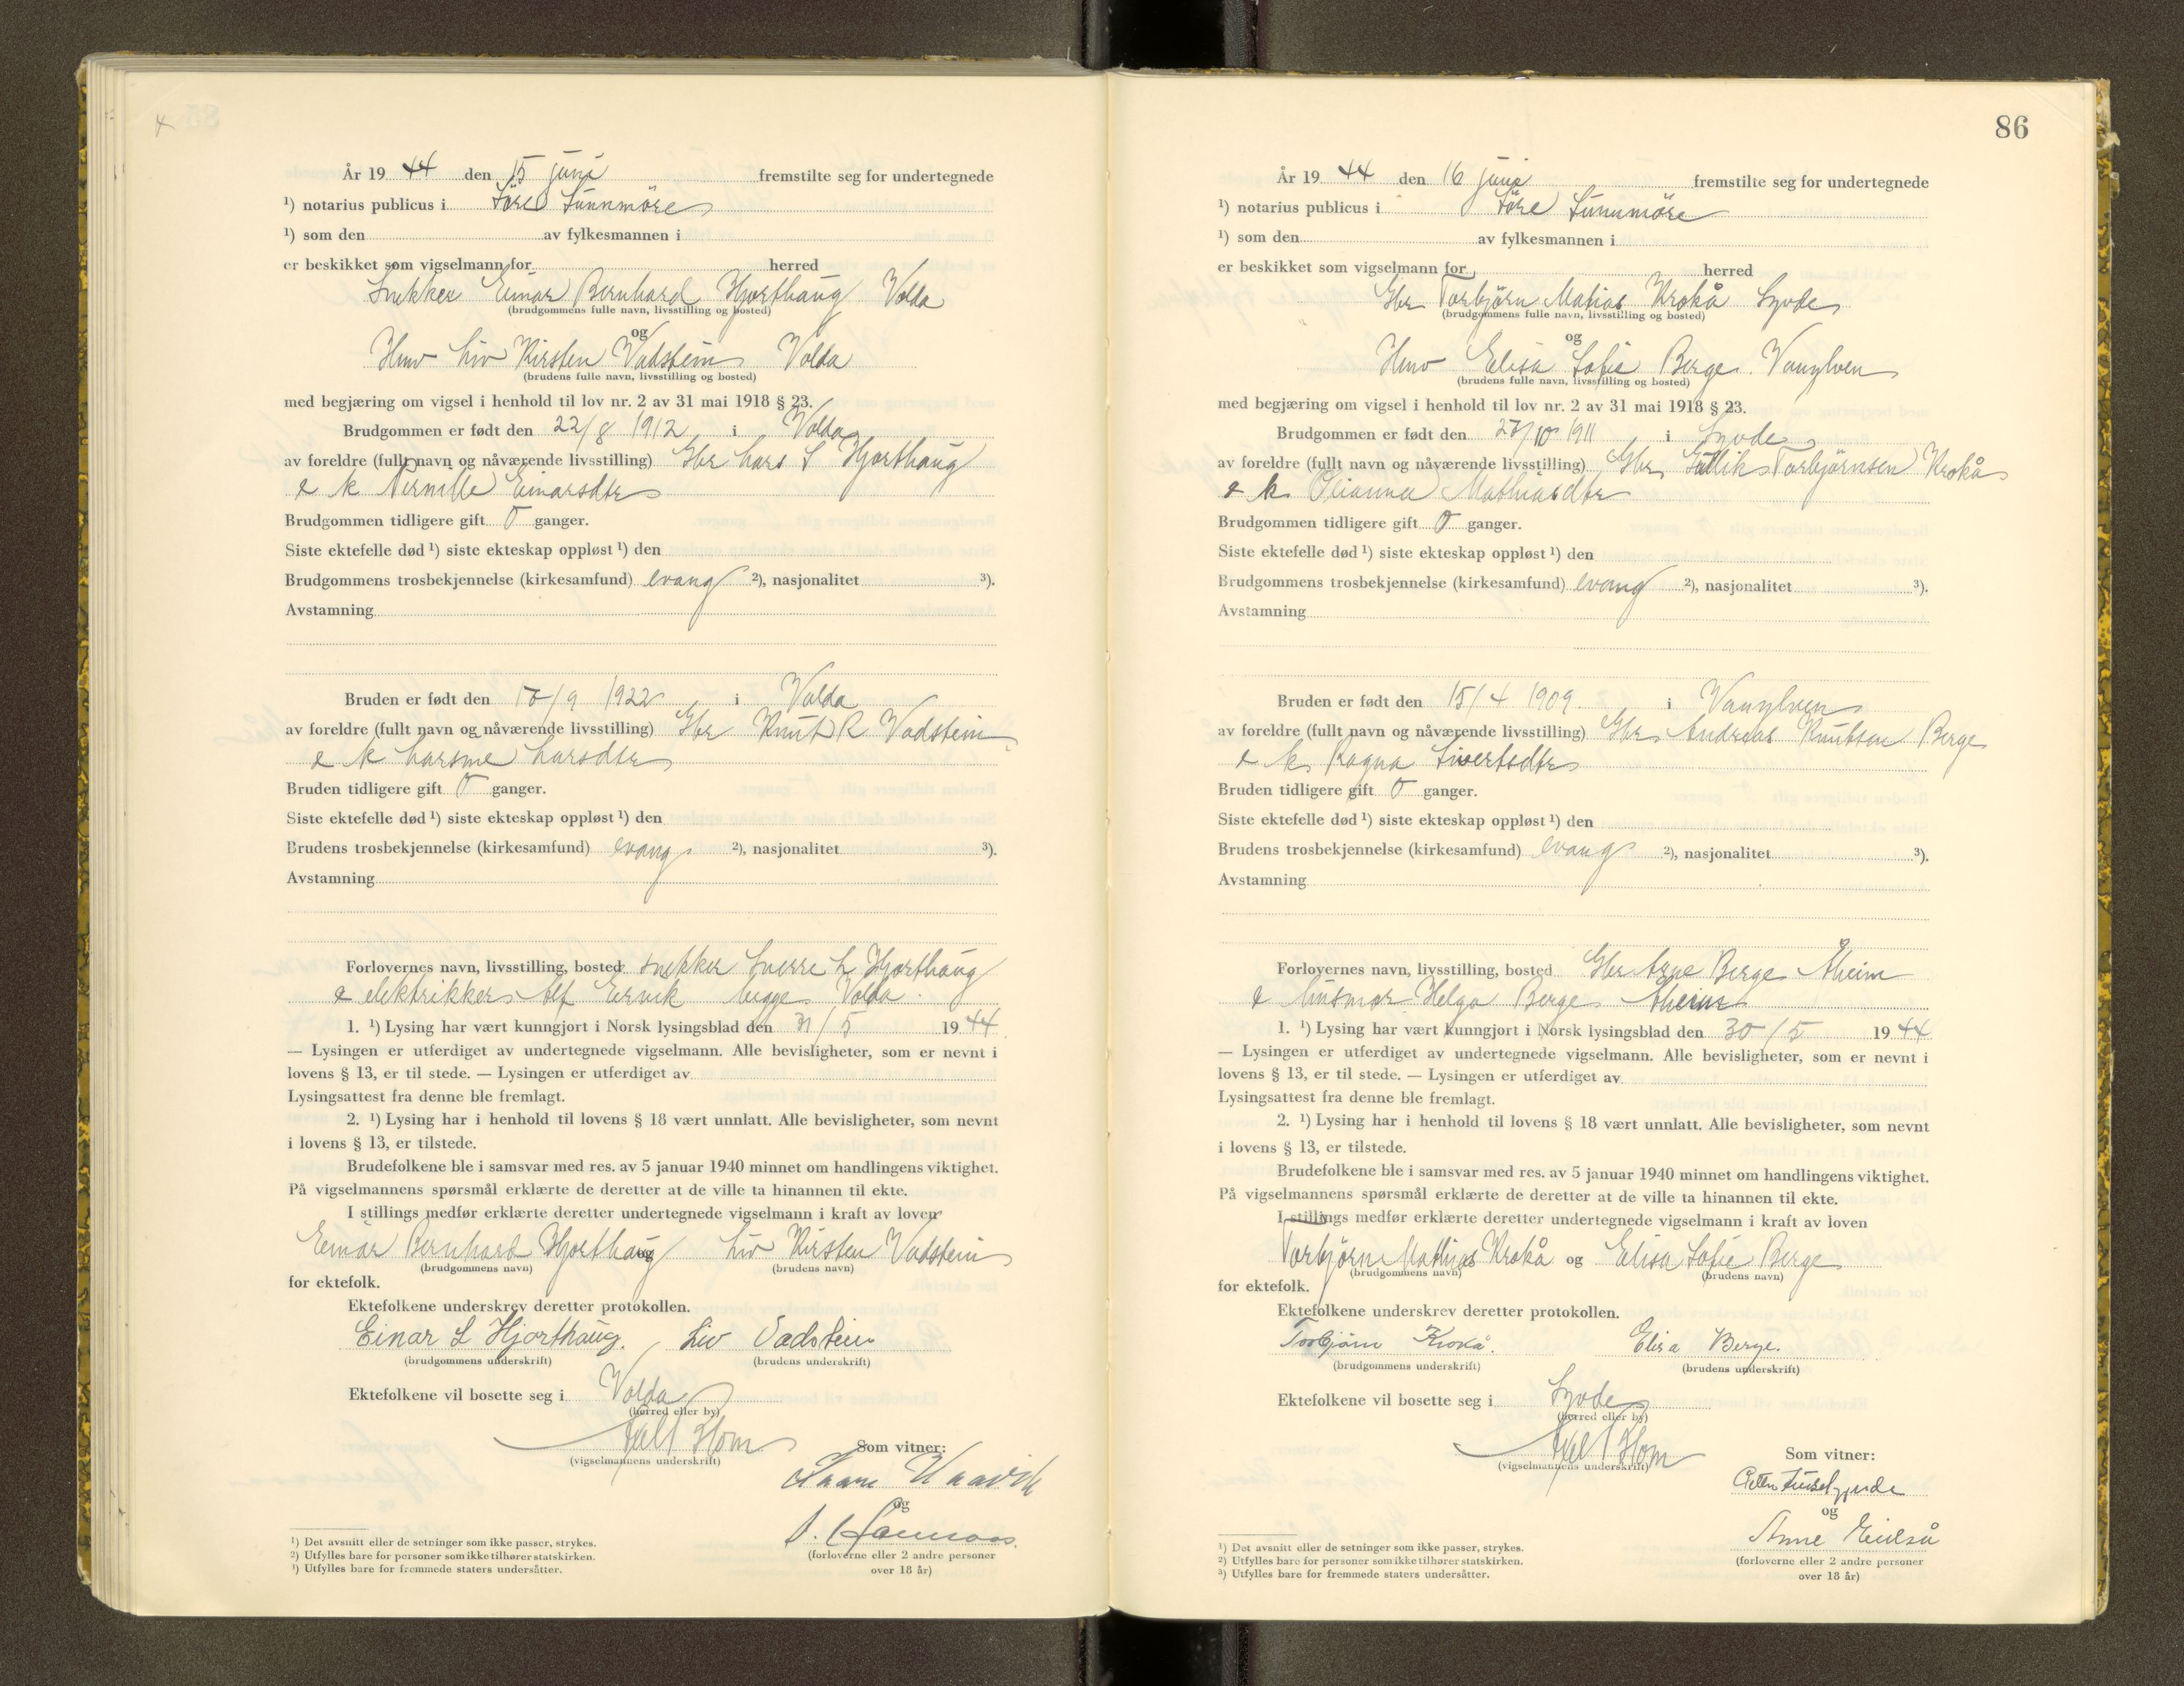 År 19 44 den 15 juni fremstilte seg for undertegnede
¹) notarius publicus i Söre Sunnmöre
¹) som den av fylkesmannen i
er beskikket som vigselmann for herred
Snekker Einar Bernhard Hjorthaug Volda
(brudgommens fulle navn, livsstilling og bosted)
og
Hmo Liv Kirsten Vadstein Volda
(brudens fulle navn, livsstilling og bosted)
med begjæring om vigsel i henhold til lov nr. 2 av 31 mai 1918 § 23.
Brudgommen er født den 22/8 1912 i Volda
av foreldre (fullt navn og nåværende livsstilling) Gbr Lars S Hjorthaug
& k Pernille Einarsdtr
Brudgommen tidligere gift 0 ganger.
Siste ektefelle død ¹) siste ekteskap oppløst ¹) den
Brudgommens trosbekjennelse (kirkesamfund) evang ²), nasjonalitet ³).
Avstamning
Bruden er født den 10/9 1922 i Volda
av foreldre (fullt navn og nåværende livsstilling) Gbr Knut R Vadstein
& k Larsine Larsdtr
Bruden tidligere gift 0 ganger.
Siste ektefelle død ¹) siste ekteskap oppløst ¹) den
Brudens trosbekjennelse (kirkesamfund) evang ²), nasjonalitet ³).
Avstamning
Forlovernes navn, livsstilling, bosted snekker Sverre L Hjorthaug
& elektrikker Alf Ervik begge Volda.
1. ¹) Lysing har vært kunngjort i Norsk lysingsblad den 31/5 19 44
— Lysingen er utferdiget av undertegnede vigselmann. Alle bevisligheter, som er nevnt i
lovens § 13, er til stede. — Lysingen er utferdiget av
Lysingsattest fra denne ble fremlagt.
2. ¹) Lysing har i henhold til lovens § 18 vært unnlatt. Alle bevisligheter, som nevnt
i lovens § 13, er tilstede.
Brudefolkene ble i samsvar med res. av 5 januar 1940 minnet om handlingens viktighet.
På vigselmannens spørsmål erklærte de deretter at de ville ta hinannen til ekte.
I stillings medfør erklærte deretter undertegnede vigselmann i kraft av loven
Einar Bernhard Hjorthaug Liv Kirsten Vadstein
(brudgommens navn) (brudens navn)
for ektefolk.
Ektefolkene underskrev deretter protokollen.
Einar L Hjorthaug. Liv Vadstein
(brudgommens underskrift) (brudens underskrift)
Ektefolkene vil bosette seg i Volda
(herred eller by)
Hom
(vigselmannens underskrift)
Som vitner:
og
(forloverne eller 2 andre personer
over 18 år)
¹) Det avsnitt eller de setninger som ikke passer, strykes.
²) Utfylles bare for personer som ikke tilhører statskirken.
³) Utfylles bare for fremmede staters undersåtter.
86
År 19 44 den 16 juni fremstilte seg for undertegnede
¹) notarius publicus i Söre Sunnmöre
¹) som den av fylkesmannen i
er beskikket som vigselmann for herred
Gbr Torbjörn Matias Krokå Syvde
(brudgommens fulle navn, livsstilling og bosted)
og
Hmo Elisa Sofie Berge Vanylven
(brudens fulle navn, livsstilling og bosted)
med begjæring om vigsel i henhold til lov nr. 2 av 31 mai 1918 § 23.
Brudgommen er født den 27/10 1911 i Syvde
av foreldre (fullt navn og nåværende livsstilling) Gbr Gullik Torbjörnsen Krokå
& k Oleanna Mathiasdtr
Brudgommen tidligere gift 0 ganger.
Siste ektefelle død ¹) siste ekteskap oppløst ¹) den
Brudgommens trosbekjennelse (kirkesamfund) evang ²), nasjonalitet ³).
Avstamning
Bruden er født den 15/4 1909. i Vanylven
av foreldre (fullt navn og nåværende livsstilling) Gbr Andreas Knutsen Berge
& k Ragna Sivertsdtr
Bruden tidligere gift 0 ganger.
Siste ektefelle død ¹) siste ekteskap oppløst ¹) den
Brudens trosbekjennelse (kirkesamfund) evang ²), nasjonalitet ³).
Avstamning
Forlovernes navn, livsstilling, bosted Gbr Arne Berge Åheim
& husmor Helga Berge Åheim
1. ¹) Lysing har vært kunngjort i Norsk lysingsblad den 30/5 19 44
— Lysingen er utferdiget av undertegnede vigselmann. Alle bevisligheter, som er nevnt i
lovens § 13, er til stede. — Lysingen er utferdiget av
Lysingsattest fra denne ble fremlagt.
2. ¹) Lysing har i henhold til lovens § 18 vært unnlatt. Alle bevisligheter, som nevnt
i lovens § 13, er tilstede.
Brudefolkene ble i samsvar med res. av 5 januar 1940 minnet om handlingens viktighet.
På vigselmannens spørsmål erklærte de deretter at de ville ta hinannen til ekte.
I stillings medfør erklærte deretter undertegnede vigselmann i kraft av loven
Torbjörn Mathias Krokå og Elisa Sofie Berge
(brudgommens navn) (brudens navn)
for ektefolk.
Ektefolkene underskrev deretter protokollen.
Torbjörn Krokå. Elisa Berge.
(brudgommens underskrift) (brudens underskrift)
Ektefolkene vil bosette seg i Syvde
(herred eller by)
Hom
(vigselmannens underskrift)
Som vitner:
og
Anne
(forloverne eller 2 andre personer
over 18 år)
¹) Det avsnitt eller de setninger som ikke passer, strykes.
²) Utfylles bare for personer som ikke tilhører statskirken.
³) Utfylles bare for fremmede staters undersåtter.